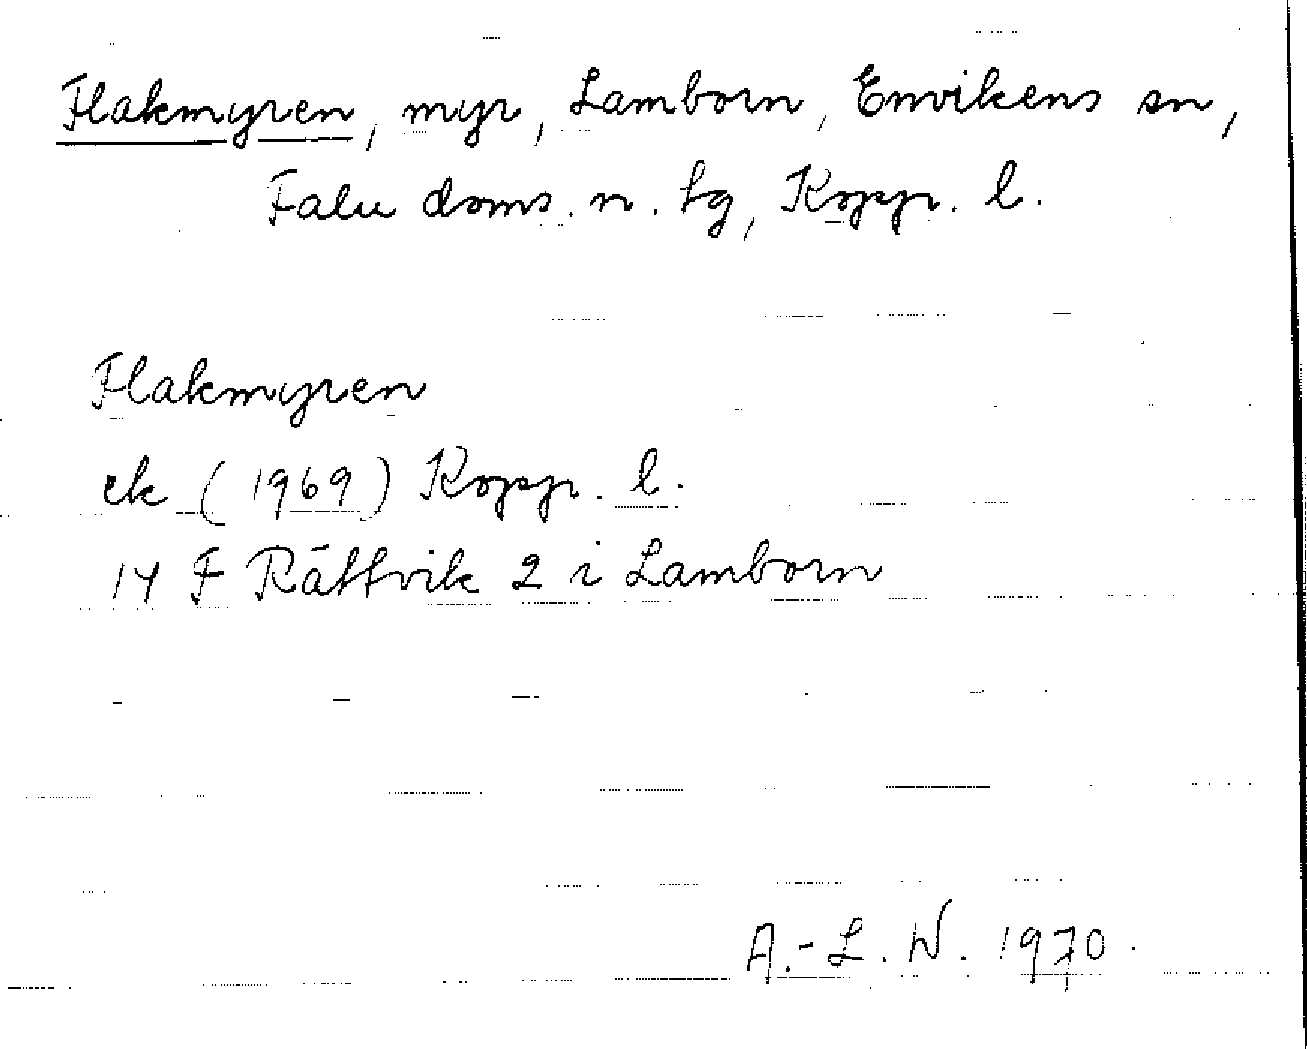 Flakmyren, myr, Lamborn, Envikens sn,
Falu doms. n. tg, Kopp. l.
Flakmyren
ek (1969) Kopp. l.
14 F Rättvik 2 i Lamborn
A.-L. W. 1970.